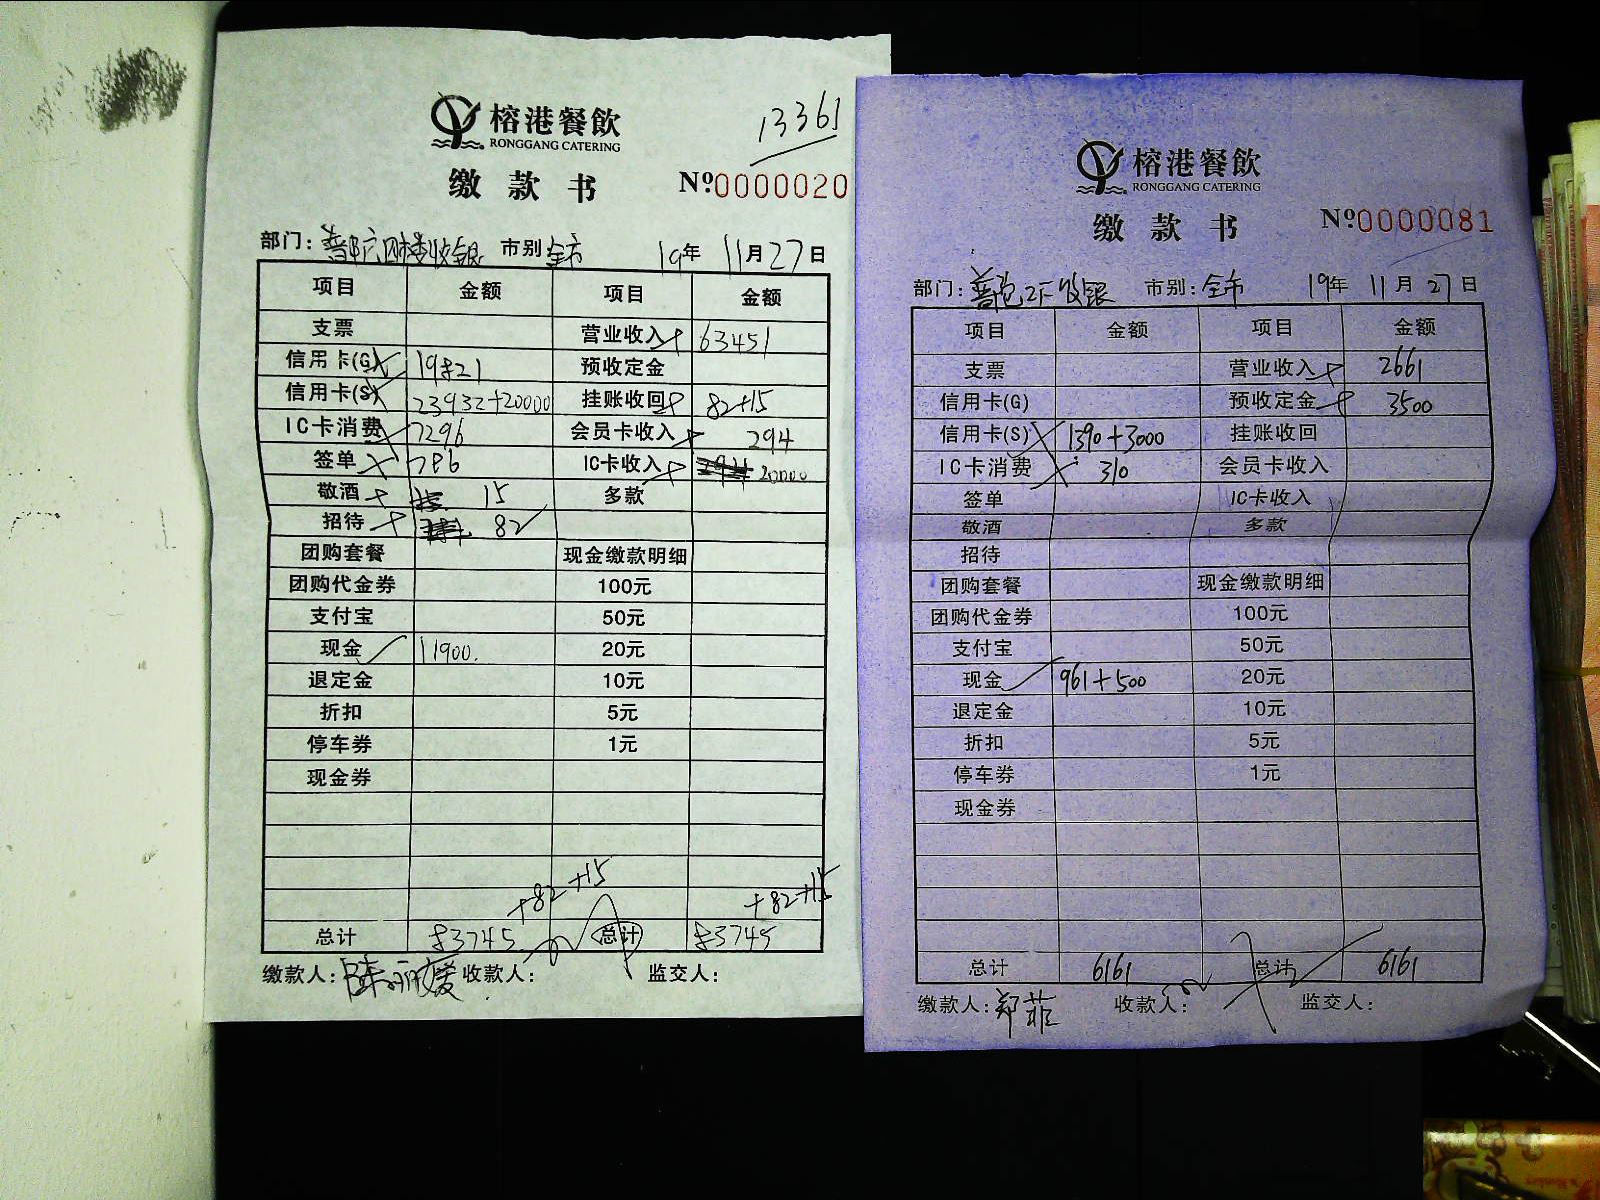 榕港餐飲
RONGGANG CATERING
13361
缴款书
Nº0000020
部门: 普陀六四楼收银 市别: 全市 19年 11月27日
项目 金额 项目 金额
支票 营业收入 63451
信用卡(G) 19821 预收定金
信用卡(S) 23932+20000 挂账收回 82+15
IC卡消费 7296 会员卡收入 294
签单 796 IC卡收入 20000
敬酒 15 多款
招待 82
团购套餐 现金缴款明细
团购代金券 100元
支付宝 50元
现金 11900. 20元
退定金 10元
折扣 5元
停车券 1元
现金券
+82+15 +82+15
总计 83745 总计 83745
缴款人: 收款人: 监交人:
榕港餐飲
RONGGANG CATERING
缴款书
Nº0000081
部门: 市别: 全市 19年 11月27日
项目 金额 项目 金额
支票 营业收入 2661
信用卡(G) 预收定金 3500
信用卡(S) 1390+3000 挂账收回
IC卡消费 310 会员卡收入
签单 IC卡收入
敬酒 多款
招待
团购套餐 现金缴款明细
团购代金券 100元
支付宝 50元
现金 961+500 20元
退定金 10元
折扣 5元
停车券 1元
现金券
总计 6161 总计 6161
缴款人: 郑菲 收款人: 监交人: